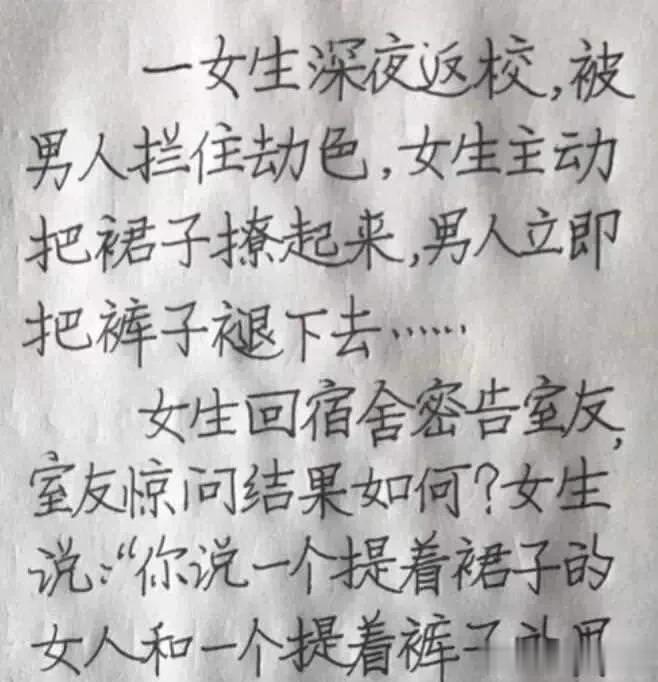 一女生深夜返校,被
男人拦住劫色,女生主动
把裙子撩起来,男人立即
把裤子褪下去……
女生回宿舍密告室友,
室友惊问结果如何?女生
说:“你说一个提着裙子的
女人和一个提着裤子的男